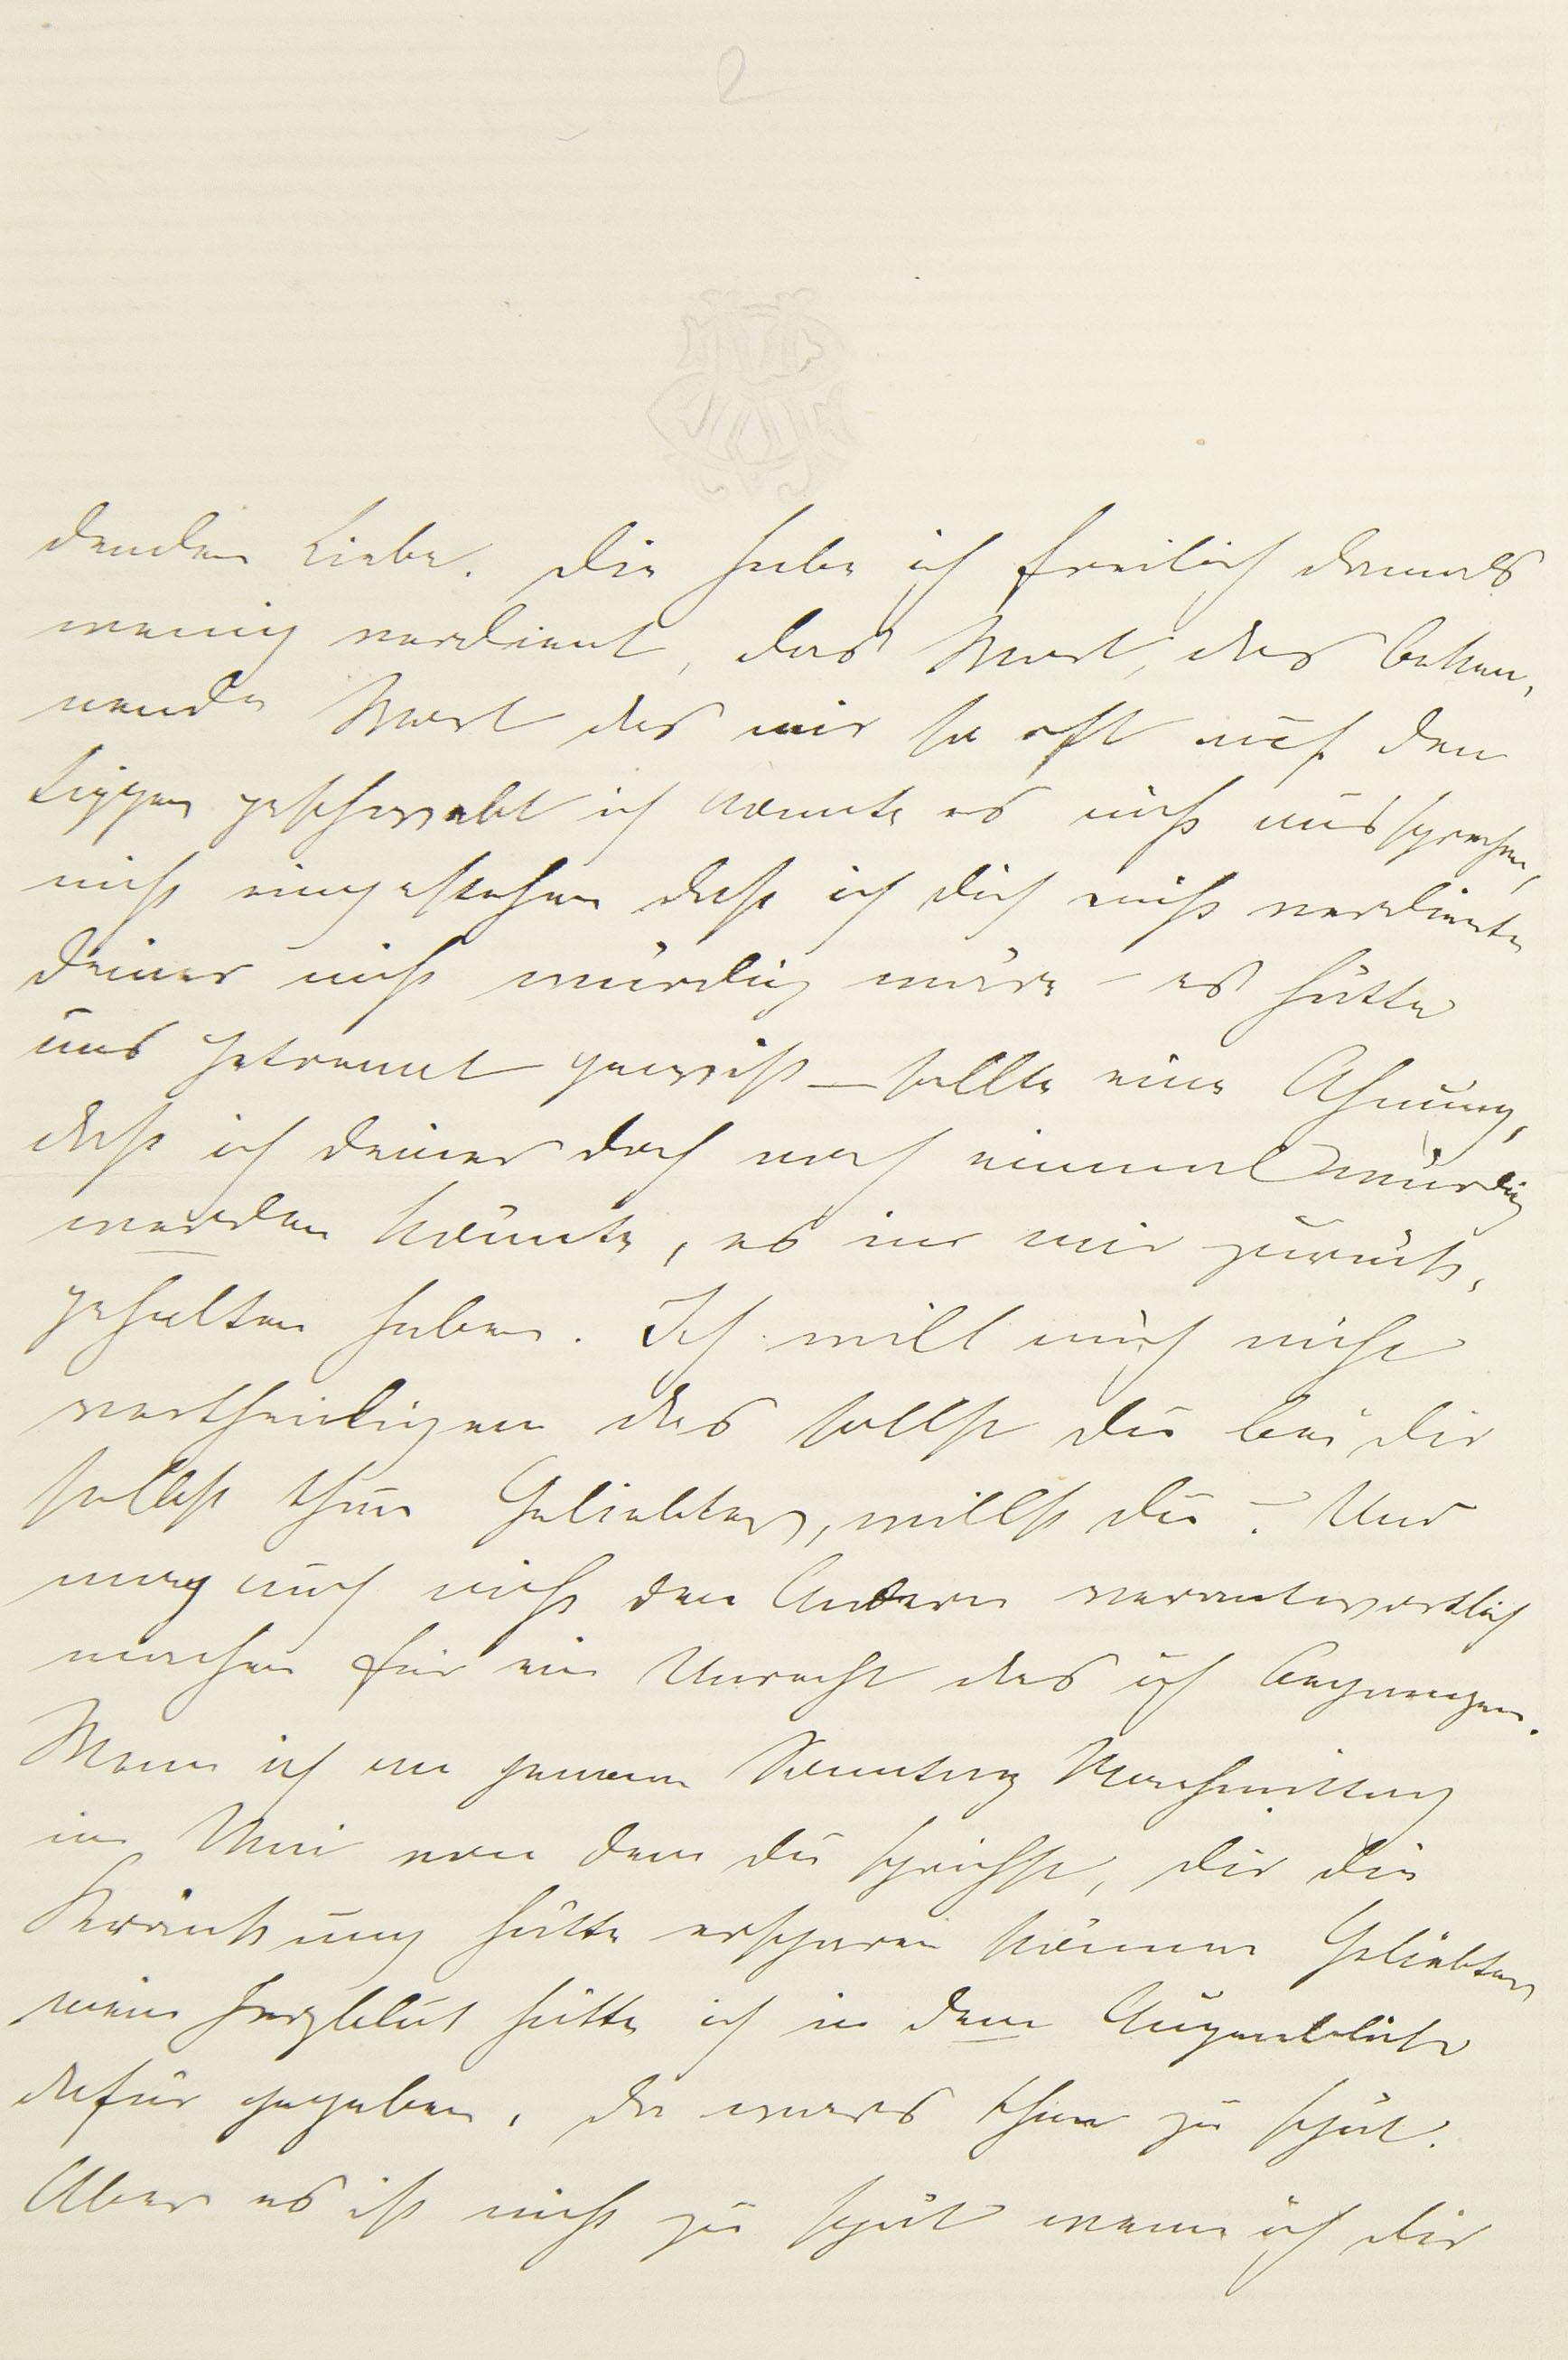 2
denden Liebe. Die habe ich freilich damals
wenig verdient, das Wort, das beken-
nende Wort das mir so oft auf den
Lippen geschwebt ich konnte es nicht aussprechen,
nicht eingestehen daß ich dich nicht verdiente
deiner nicht würdig wäre – es hätte
uns getrennt gewiß – sollte eine Ahnung,
daß ich deiner doch noch einmal würdig
werden könnte, es in mir zurück-
gehalten haben. Ich will mich nicht
vertheidigen das sollst du bei dir
selbst thun Geliebter, willst du? Und
mag auch nicht den Andern verantwortlich
machen für ein Unrecht das ich begangen.
Wenn ich an jenem Sonntag Nachmittag
im Mai von dem du sprichst, dir die
Kränkung hätte ersparen können Geliebter
mein Herzblut hätte ich in dem Augenblicke
dafür gegeben, da wars schon zu spät.
Aber es ist nicht zu spät wenn ich dir